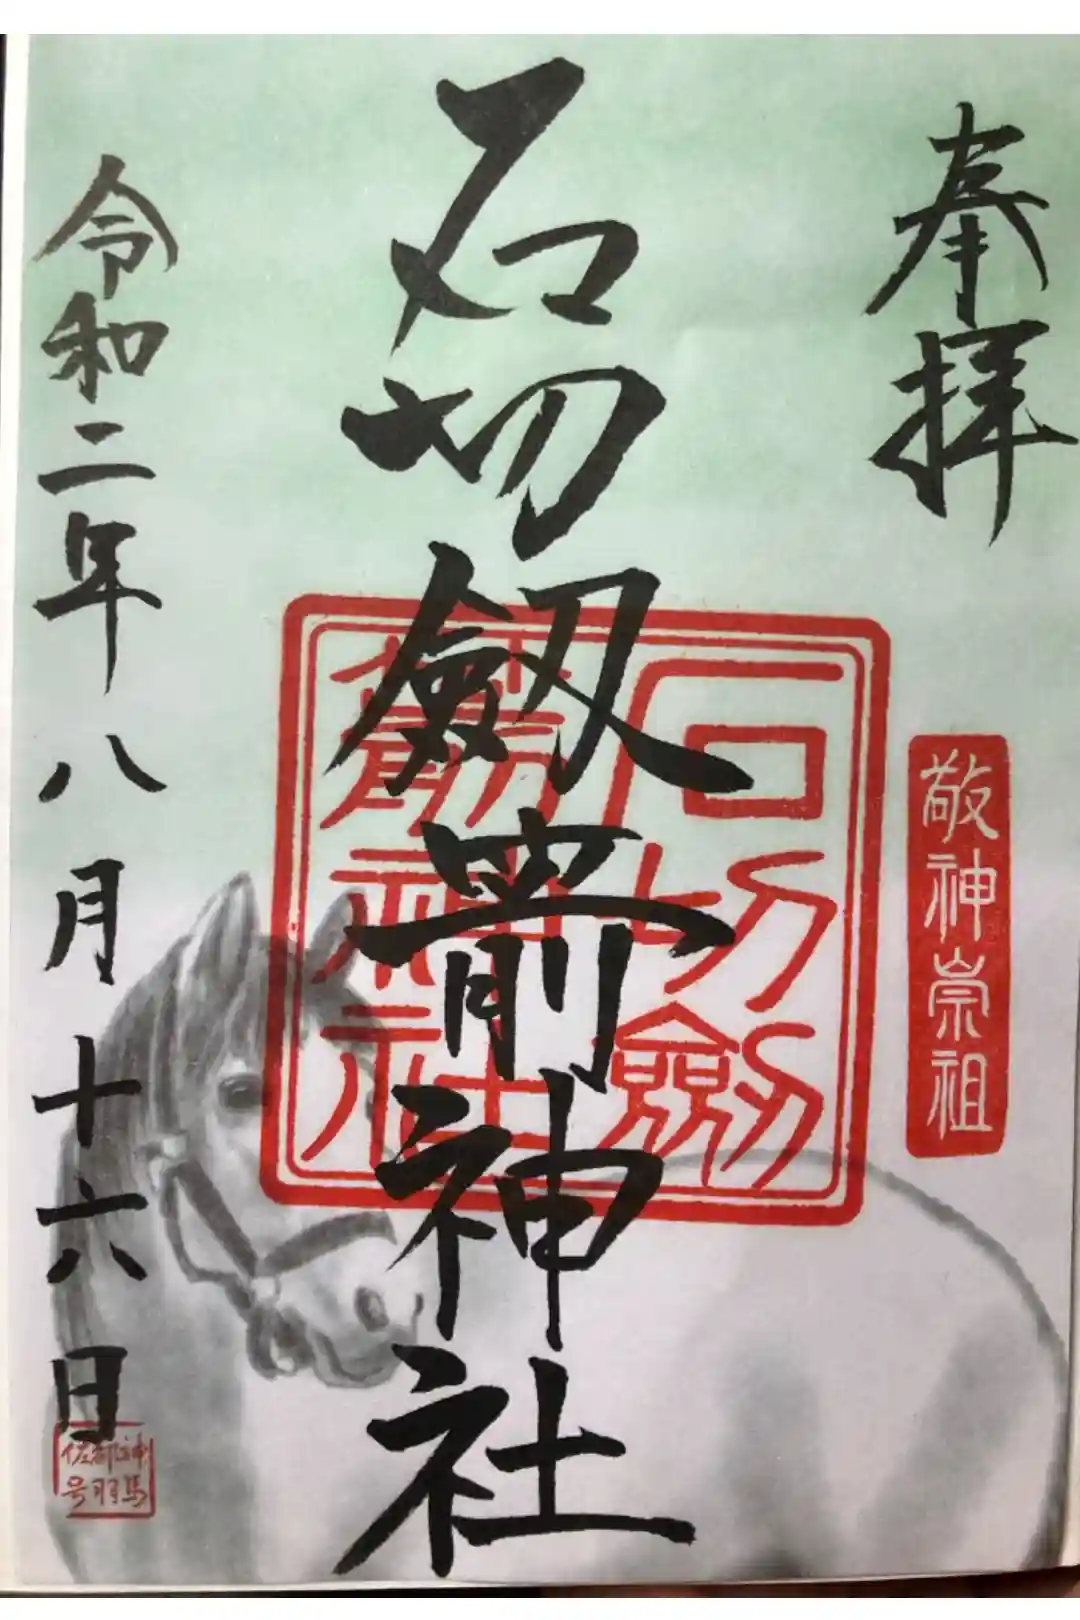 奉拝
敬神崇祖
石切劔箭神社
石切劔
箭神社
令和二年八月十六日
神馬
都羽
佐号